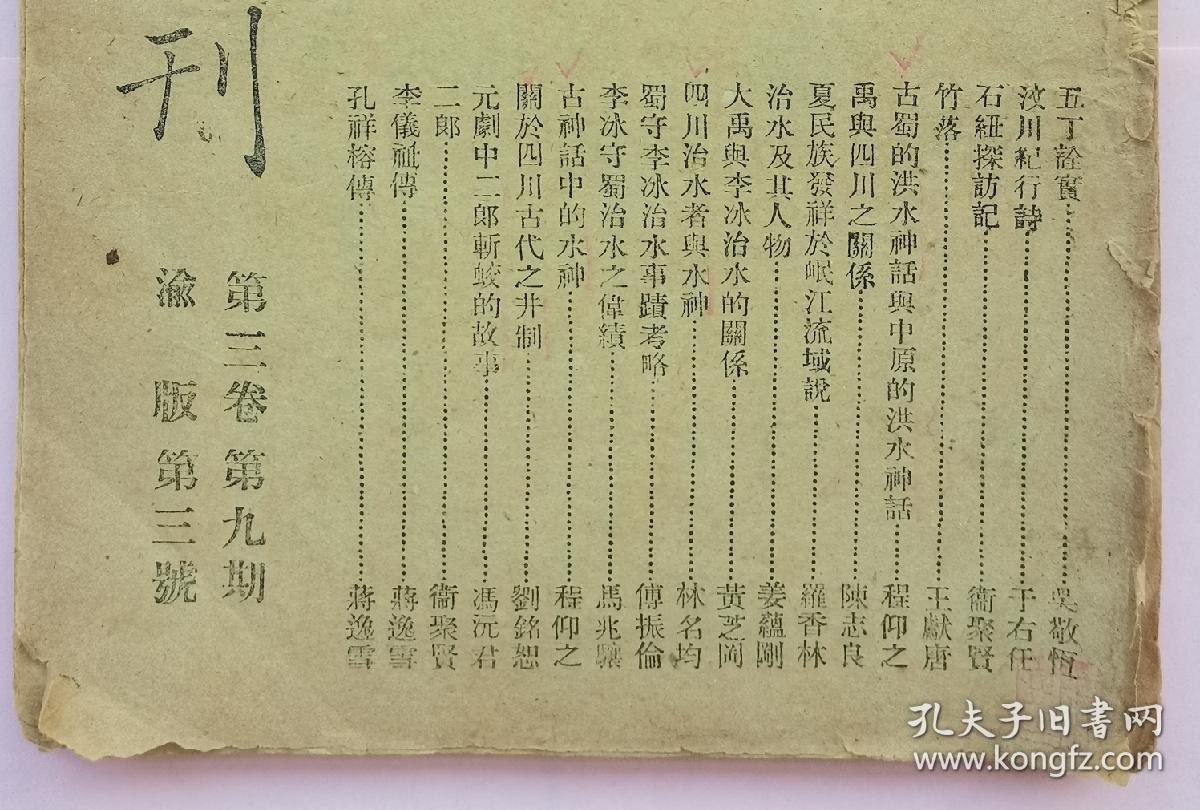 五丁詮實……吳敬恆
汶川紀行詩……于右任
石紐探訪記……衞聚賢
竹落……王獻唐
古蜀的洪水神話與中原的洪水神話……程仰之
禹與四川之關係……陳志良
夏民族發祥於岷江流域說……羅香林
治水及其人物……姜蘊剛
大禹與李冰治水的關係……黃芝岡
四川治水者與水神……林名均
蜀守李冰治水事蹟考略……傅振倫
李冰守蜀治水之偉績……馬兆驤
古神話中的水神……程仰之
關於四川古代之井制……劉銘恕
元劇中二郎斬蛟的故事……馮沅君
二郎……衞聚賢
李儀祉傳……蔣逸雪
孔祥榕傳……蔣逸雪
第三卷第九期
渝版第三號
刊
孔夫子旧书网
www.kongfz.com